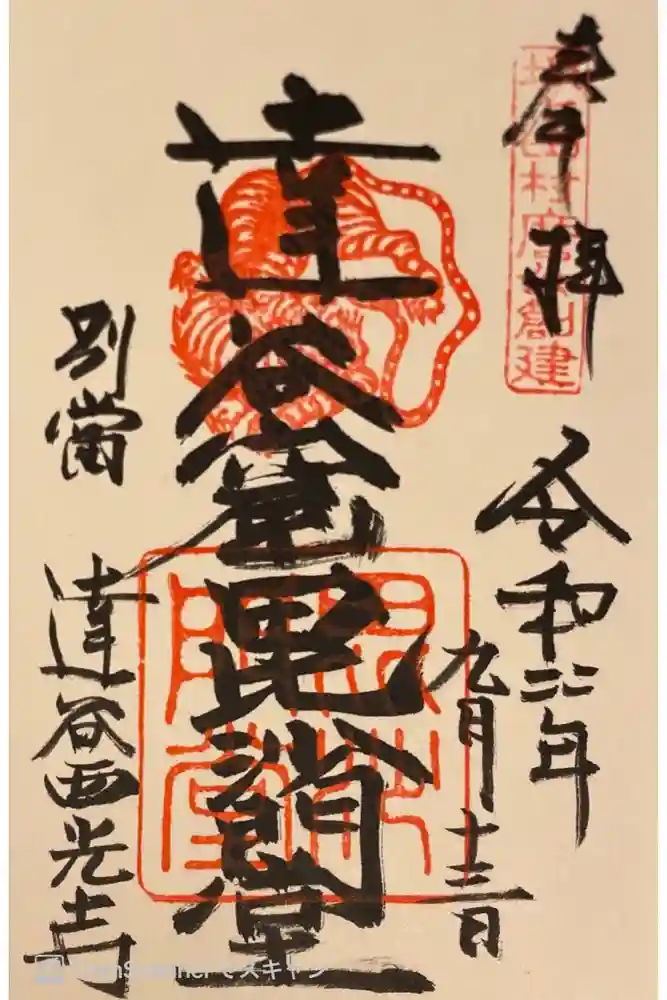 奉拝
村 創建
令和二年
九月十三日
達谷窟毘沙門堂
毘沙門堂
別當
達谷西光寺
CamScannerでスキャン